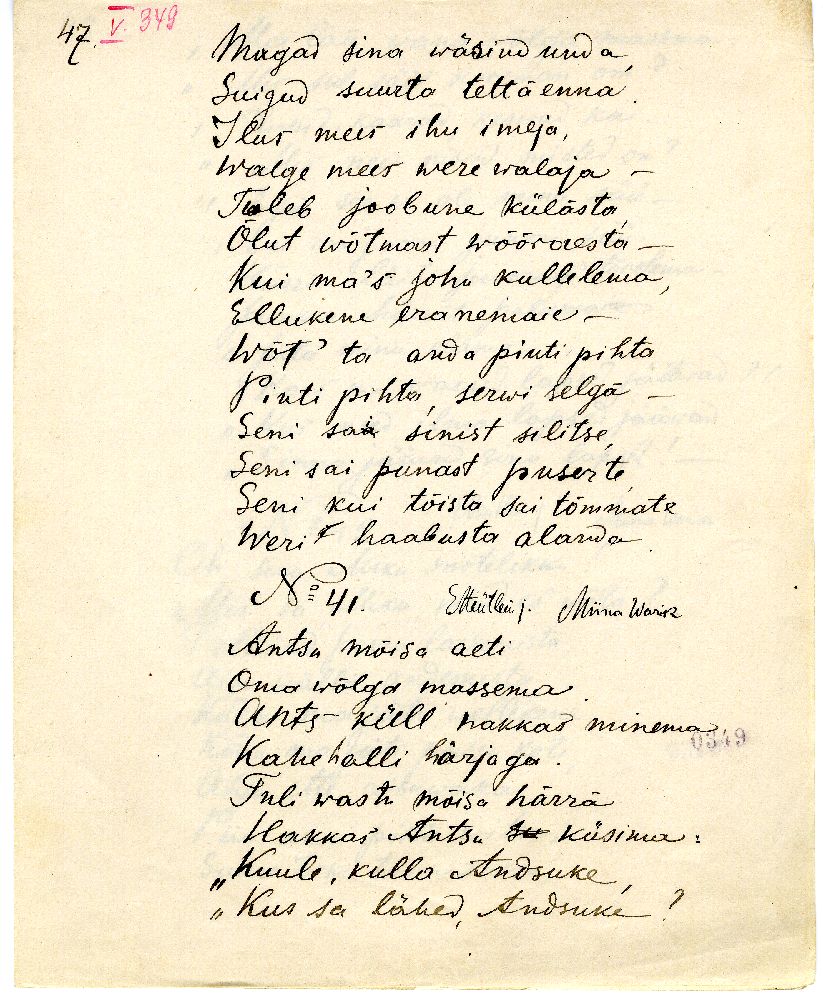 47. V. 349
Magad sina wäsind unda,
Suigud suurta tettäenna.
Ilus mees ihu imeja,
Walge mees were walaja —
Tuleb joobune külästa,
Õlut wõtmast wõõraesta —
Kui ma's johu kullelema,
Ellukene eranemaie —
Wõt' ta anda pinti pihta
Pinti pihta, serwi selgä —
Seni sai sinist silitse,
Seni sai punast puserte,
Seni kui tõista sai tõmmate
Weri haabusta alanda.
No 41. Miina
Antsu mõisa aeti
Oma wõlga massema.
Ants küll hakkas minema
Kahe halli härjaga.
Tuli wastu mõisa härrä
Hakkas Antsu küsima:
„Kuule, kulla Andsuke,
„Kus sa lähed, Andsuke?
0349